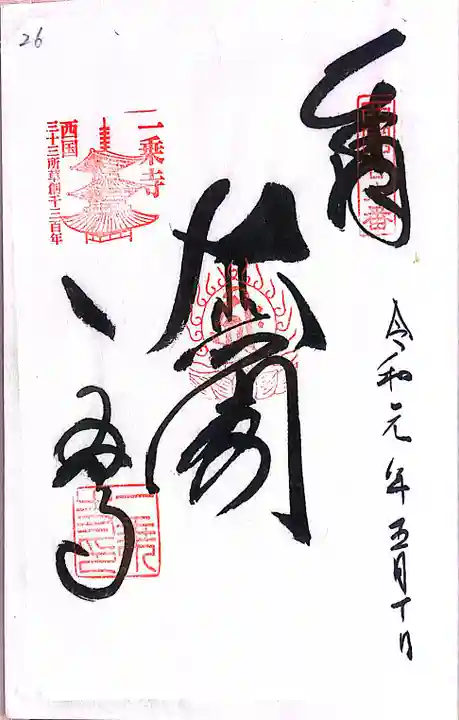 奉拝
令和元年五月十日
大悲閣
一乗寺
一乗寺
西国
三十三所草創千三百年
26